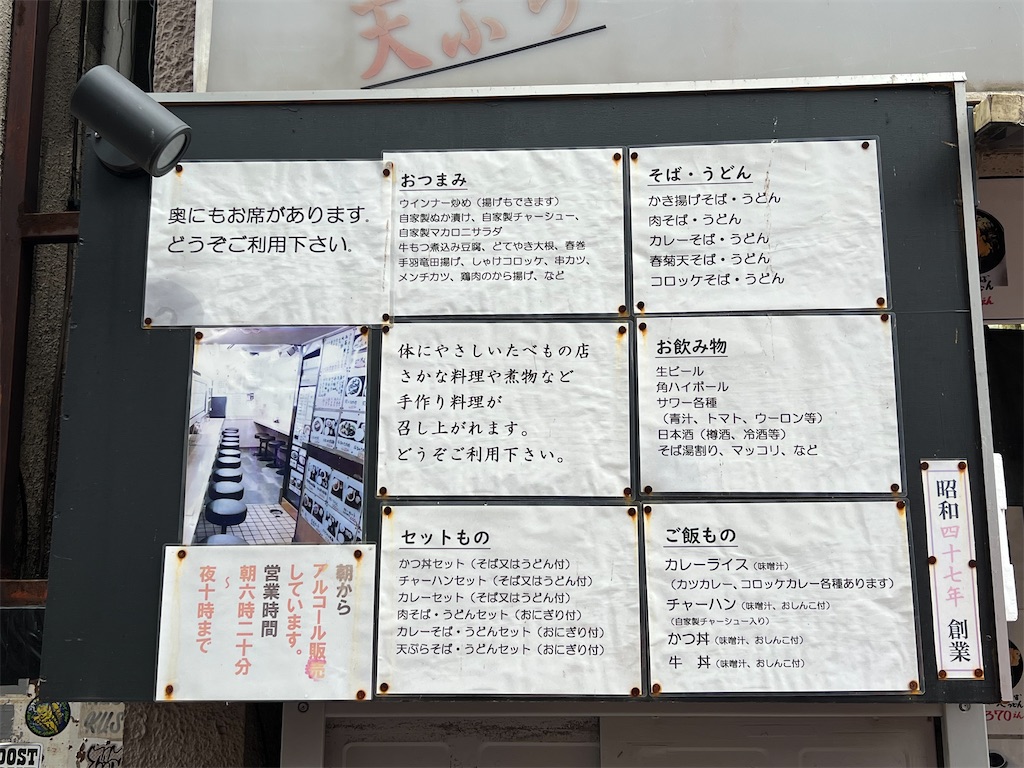 天ぷら
奥にもお席があります。
どうぞご利用下さい。
おつまみ
ウインナー炒め（揚げもできます）
自家製ぬか漬け、自家製チャーシュー、
自家製マカロニサラダ
牛もつ煮込み豆腐、どてやき大根、春巻
手羽竜田揚げ、しゃけコロッケ、串カツ、
メンチカツ、鶏肉のから揚げ、など
そば・うどん
かき揚げそば・うどん
肉そば・うどん
カレーそば・うどん
春菊天そば・うどん
コロッケそば・うどん
体にやさしいたべもの店
さかな料理や煮物など
手作り料理が
召し上がれます。
どうぞご利用下さい。
お飲み物
生ビール
角ハイボール
サワー各種
（青汁、トマト、ウーロン等）
日本酒（樽酒、冷酒等）
そば湯割り、マッコリ、など
朝から
アルコール販売
しています。
営業時間
朝六時二十分
〜
夜十時まで
セットもの
かつ丼セット（そば又はうどん付）
チャーハンセット（そば又はうどん付）
カレーセット（そば又はうどん付）
肉そば・うどんセット（おにぎり付）
カレーそば・うどんセット（おにぎり付）
天ぷらそば・うどんセット（おにぎり付）
ご飯もの
カレーライス（味噌汁）
（カツカレー、コロッケカレー各種あります）
チャーハン（味噌汁、おしんこ付）
（自家製チャーシュー入り）
かつ丼（味噌汁、おしんこ付）
牛　丼（味噌汁、おしんこ付）
昭和四十七年　創業
370
OOST